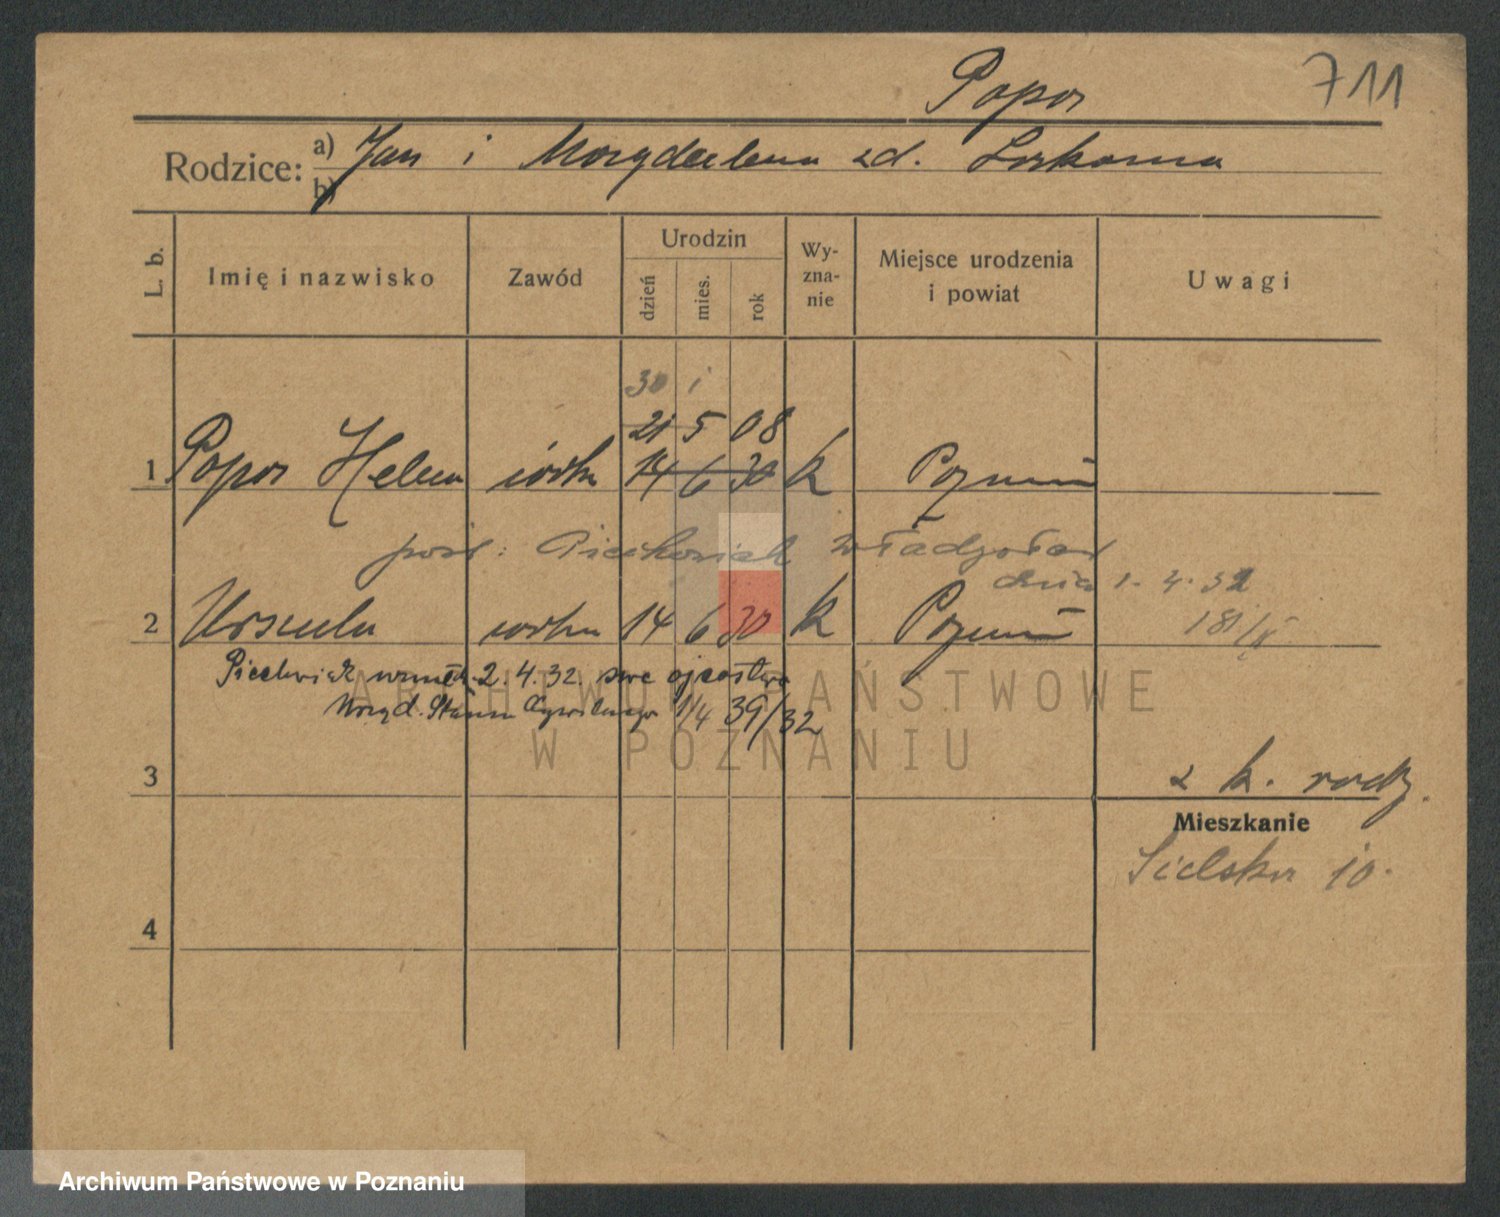 Popor
711
Rodzice: a) Jan i Magdalena zd.
b)
L. b.
Imię i nazwisko
Zawód
Urodzin
dzień
mies.
rok
Wy-
zna-
nie
Miejsce urodzenia
i powiat
Uwagi
30 i
21 5 08
1 Popor Helena córka 14 6 30 k Poznań
pośl: Piechowiak Władysław
dnia 1. 4. 32
2 Urszula córka 14 6 30 k Poznań
2. 4. 32. swe ojcostwo
Urząd. Stanu Cywilnego 1/4 39/32
3
z k. rodz.
Mieszkanie
Sielska 10.
4
ARCHIWUM PAŃSTWOWE
W POZNANIU
Archiwum Państwowe w Poznaniu